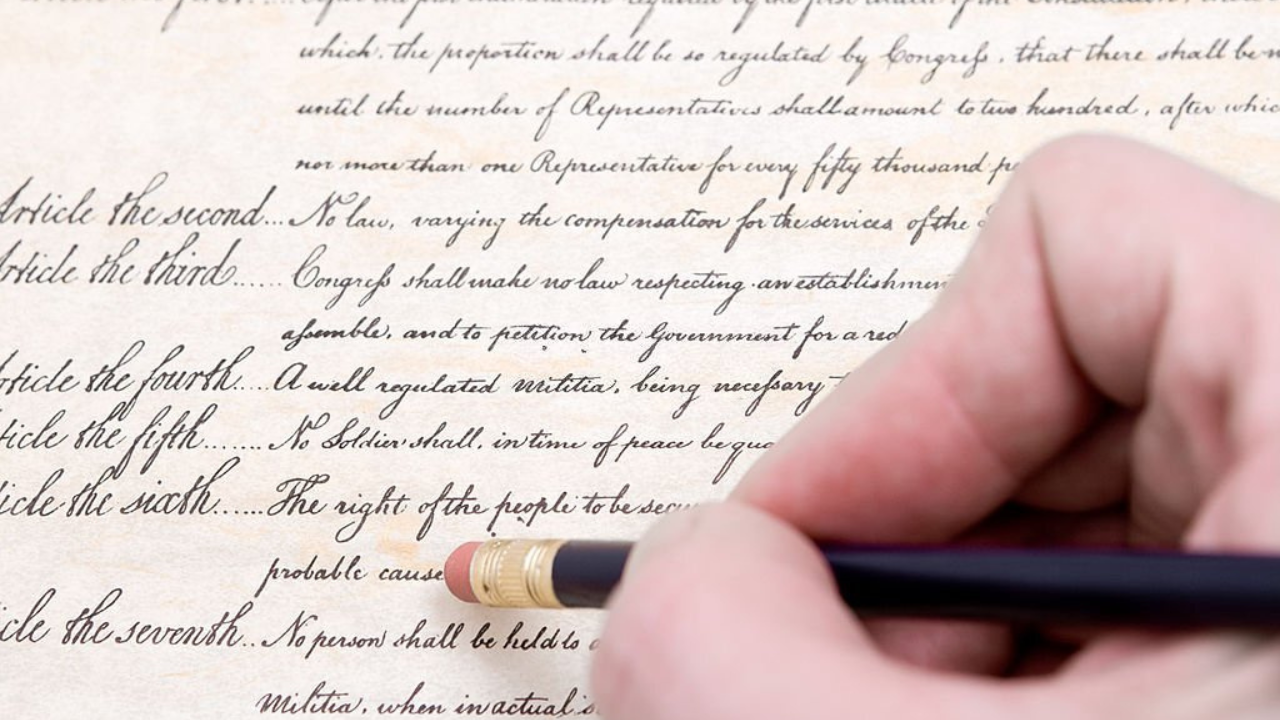 which, the proportion shall be so regulated by Congress, that there shall be
until the number of Representatives shall amount to two hundred, after
nor more than one Representative for every fifty thousand
Article the second... No law, varying the compensation for the services of the
Article the third...... Congress shall make no law respecting an
assemble, and to petition the Government for a
Article the fourth.... A well regulated militia, being necessary
the fifth....... No Soldier shall, in time of peace be
the sixth...... The right of the people to be
probable cause
the seventh.. No person shall be held to
Militia, when in actual